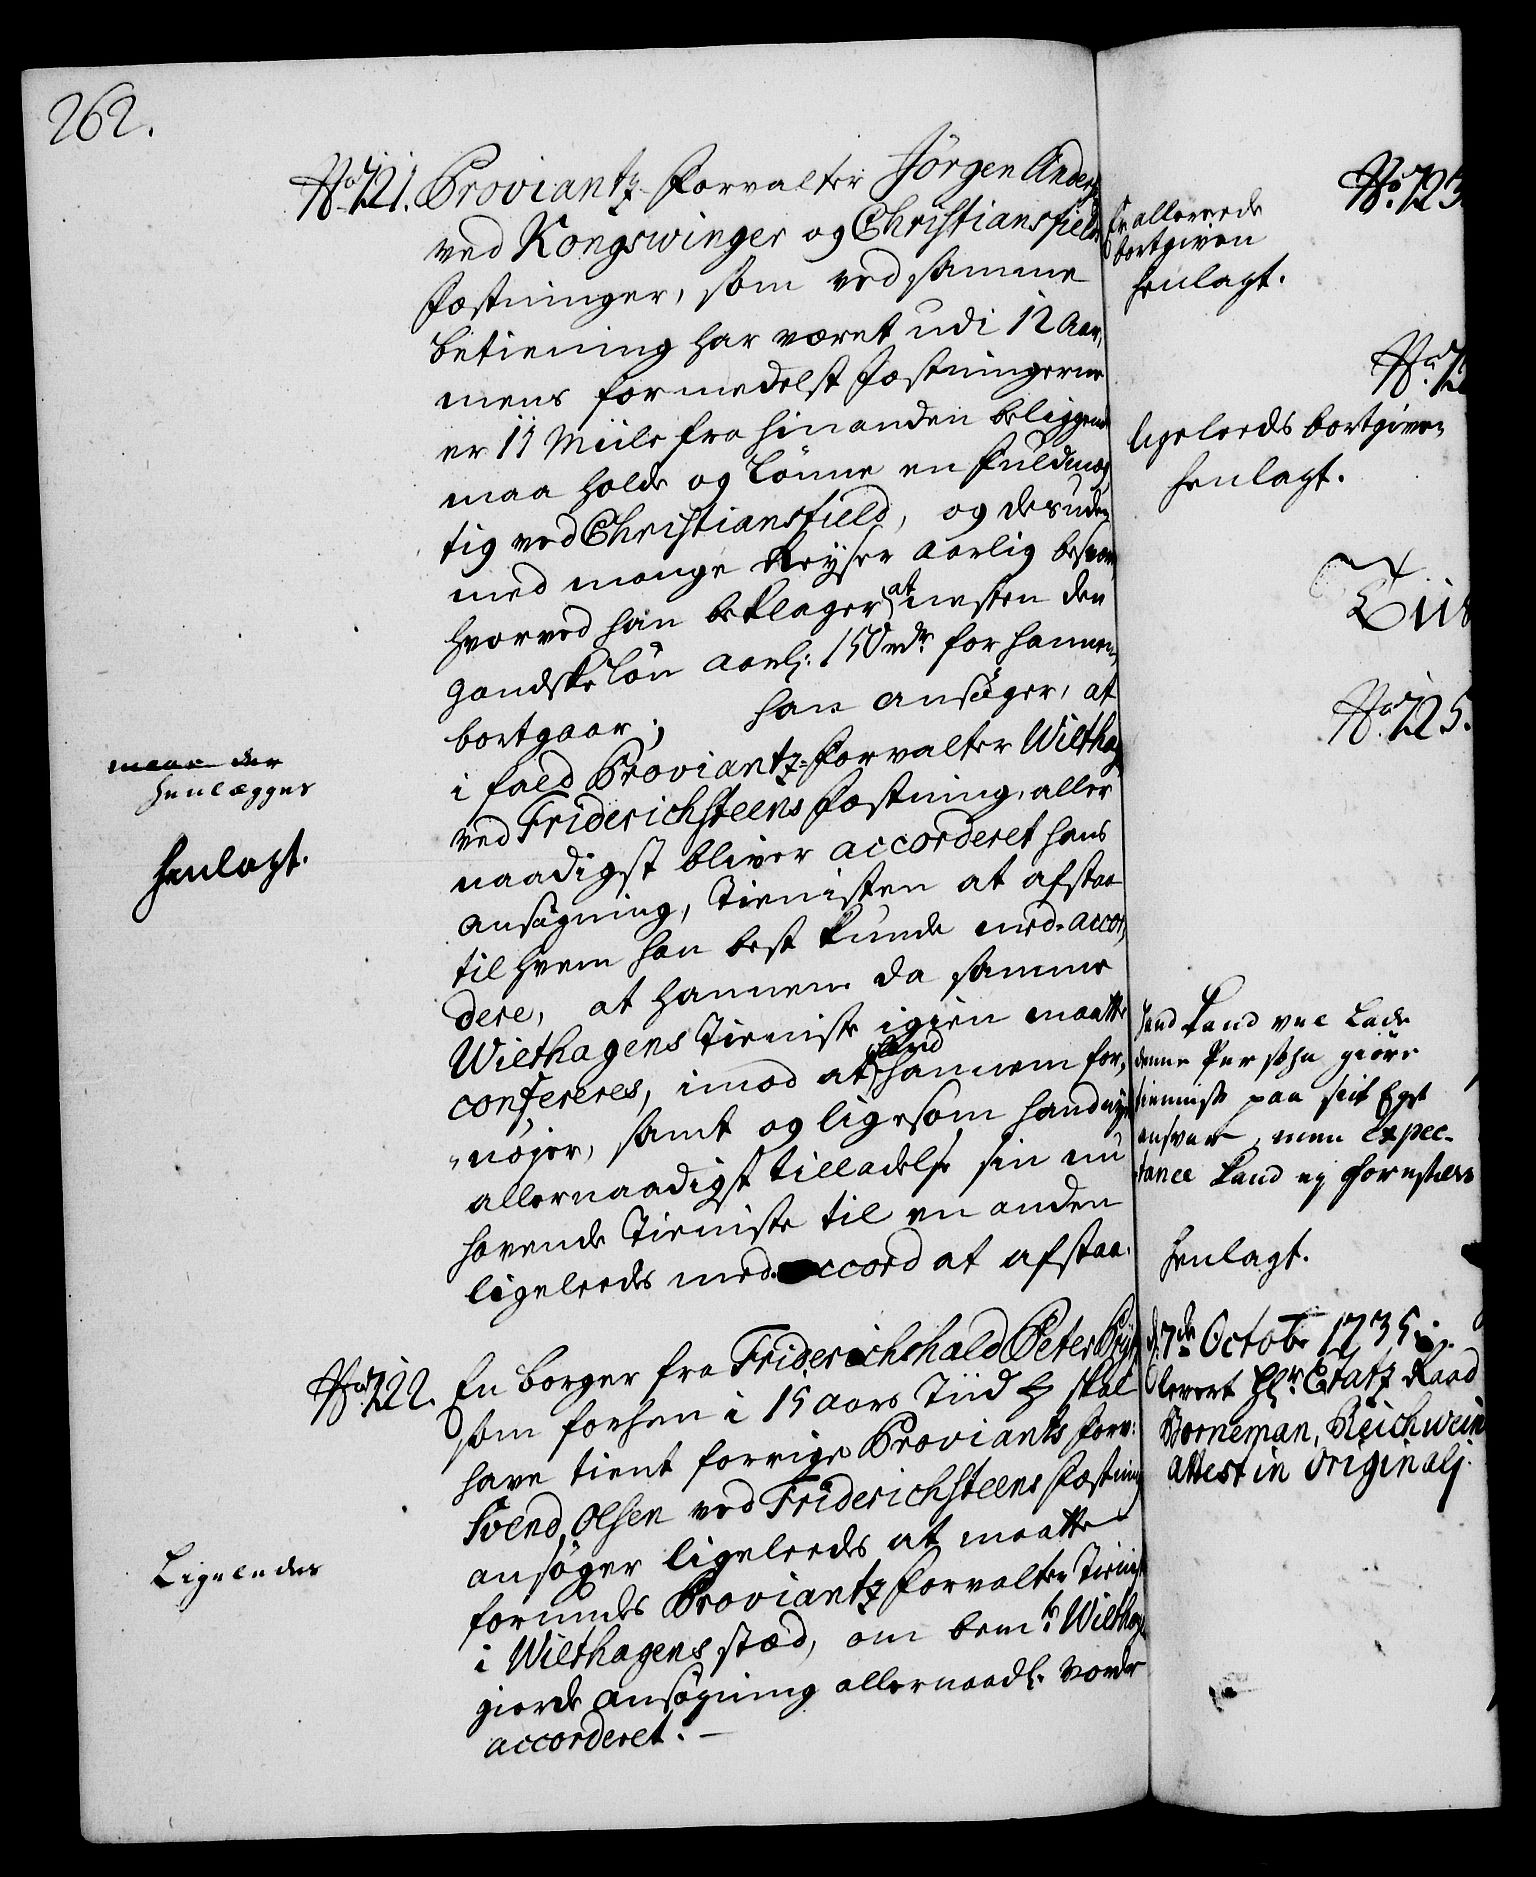 262.
No. 721. Proviantz-Forvalter Jörgen Anders
ved Kongswinger og Christiansfield
Fæstninger, som ved samme
betiening har været udi 12 Aar,
mens formedelst Fæstningerne
er 11 Miile fra hinanden beliggende
maa holde og lönne en Fuldmæg
tig ved Christiansfield, og desuden
med mange Reyser aarlig besvær
hvorved han beklager at næsten den
gandske lön aarl: 150 rdr for hannem
bortgaar; han ansöger, at
i fald Proviantz-Forvalter Wilthag
ved Friderichsteens Fæstning, aller
naadigst bliver accorderet hans
ansögning, Tienisten at afstaa
til hvem han best kunde med accor
dere, at hannem da samme
Wielthagens Tieniste igien maatte
confereres, imod at hand hannem for,
nöjer, samt og ligesom hand nyde
allernaadigst tilladelse sin nu
havende Tieniste til en anden
ligeleedes med accord at afstaa.
maae der
henlægges
henlagt.
No. 722. En borger fra Friderichshald Peter
som forhen i 15 aars Tiid skal
have tient forrige Proviants Forv:
Svend Olsen ved Friderichsteens Fæstning
ansöger ligeleedes at maatte
forundes Proviantz Forvalter Tienist
i Wilthagens stæd, om bemte Wilthag
giorde ansögning allernaadl: vorde
accorderet. –
Ligeledes
No. 723.
Er allereede
bortgiven
henlagt.
No. 72
ligeleeds bortgiven
henlagt.
No. 725.
Hand kand vel lade
denne Persohn giöre
tienniste paa seit Eget
ansvar, men expec-
tance kand ej
henlagt.
d. 7de Octobr 1735
levert Hr Etatz Raad
Borneman, Reichwein
attest in originalj.